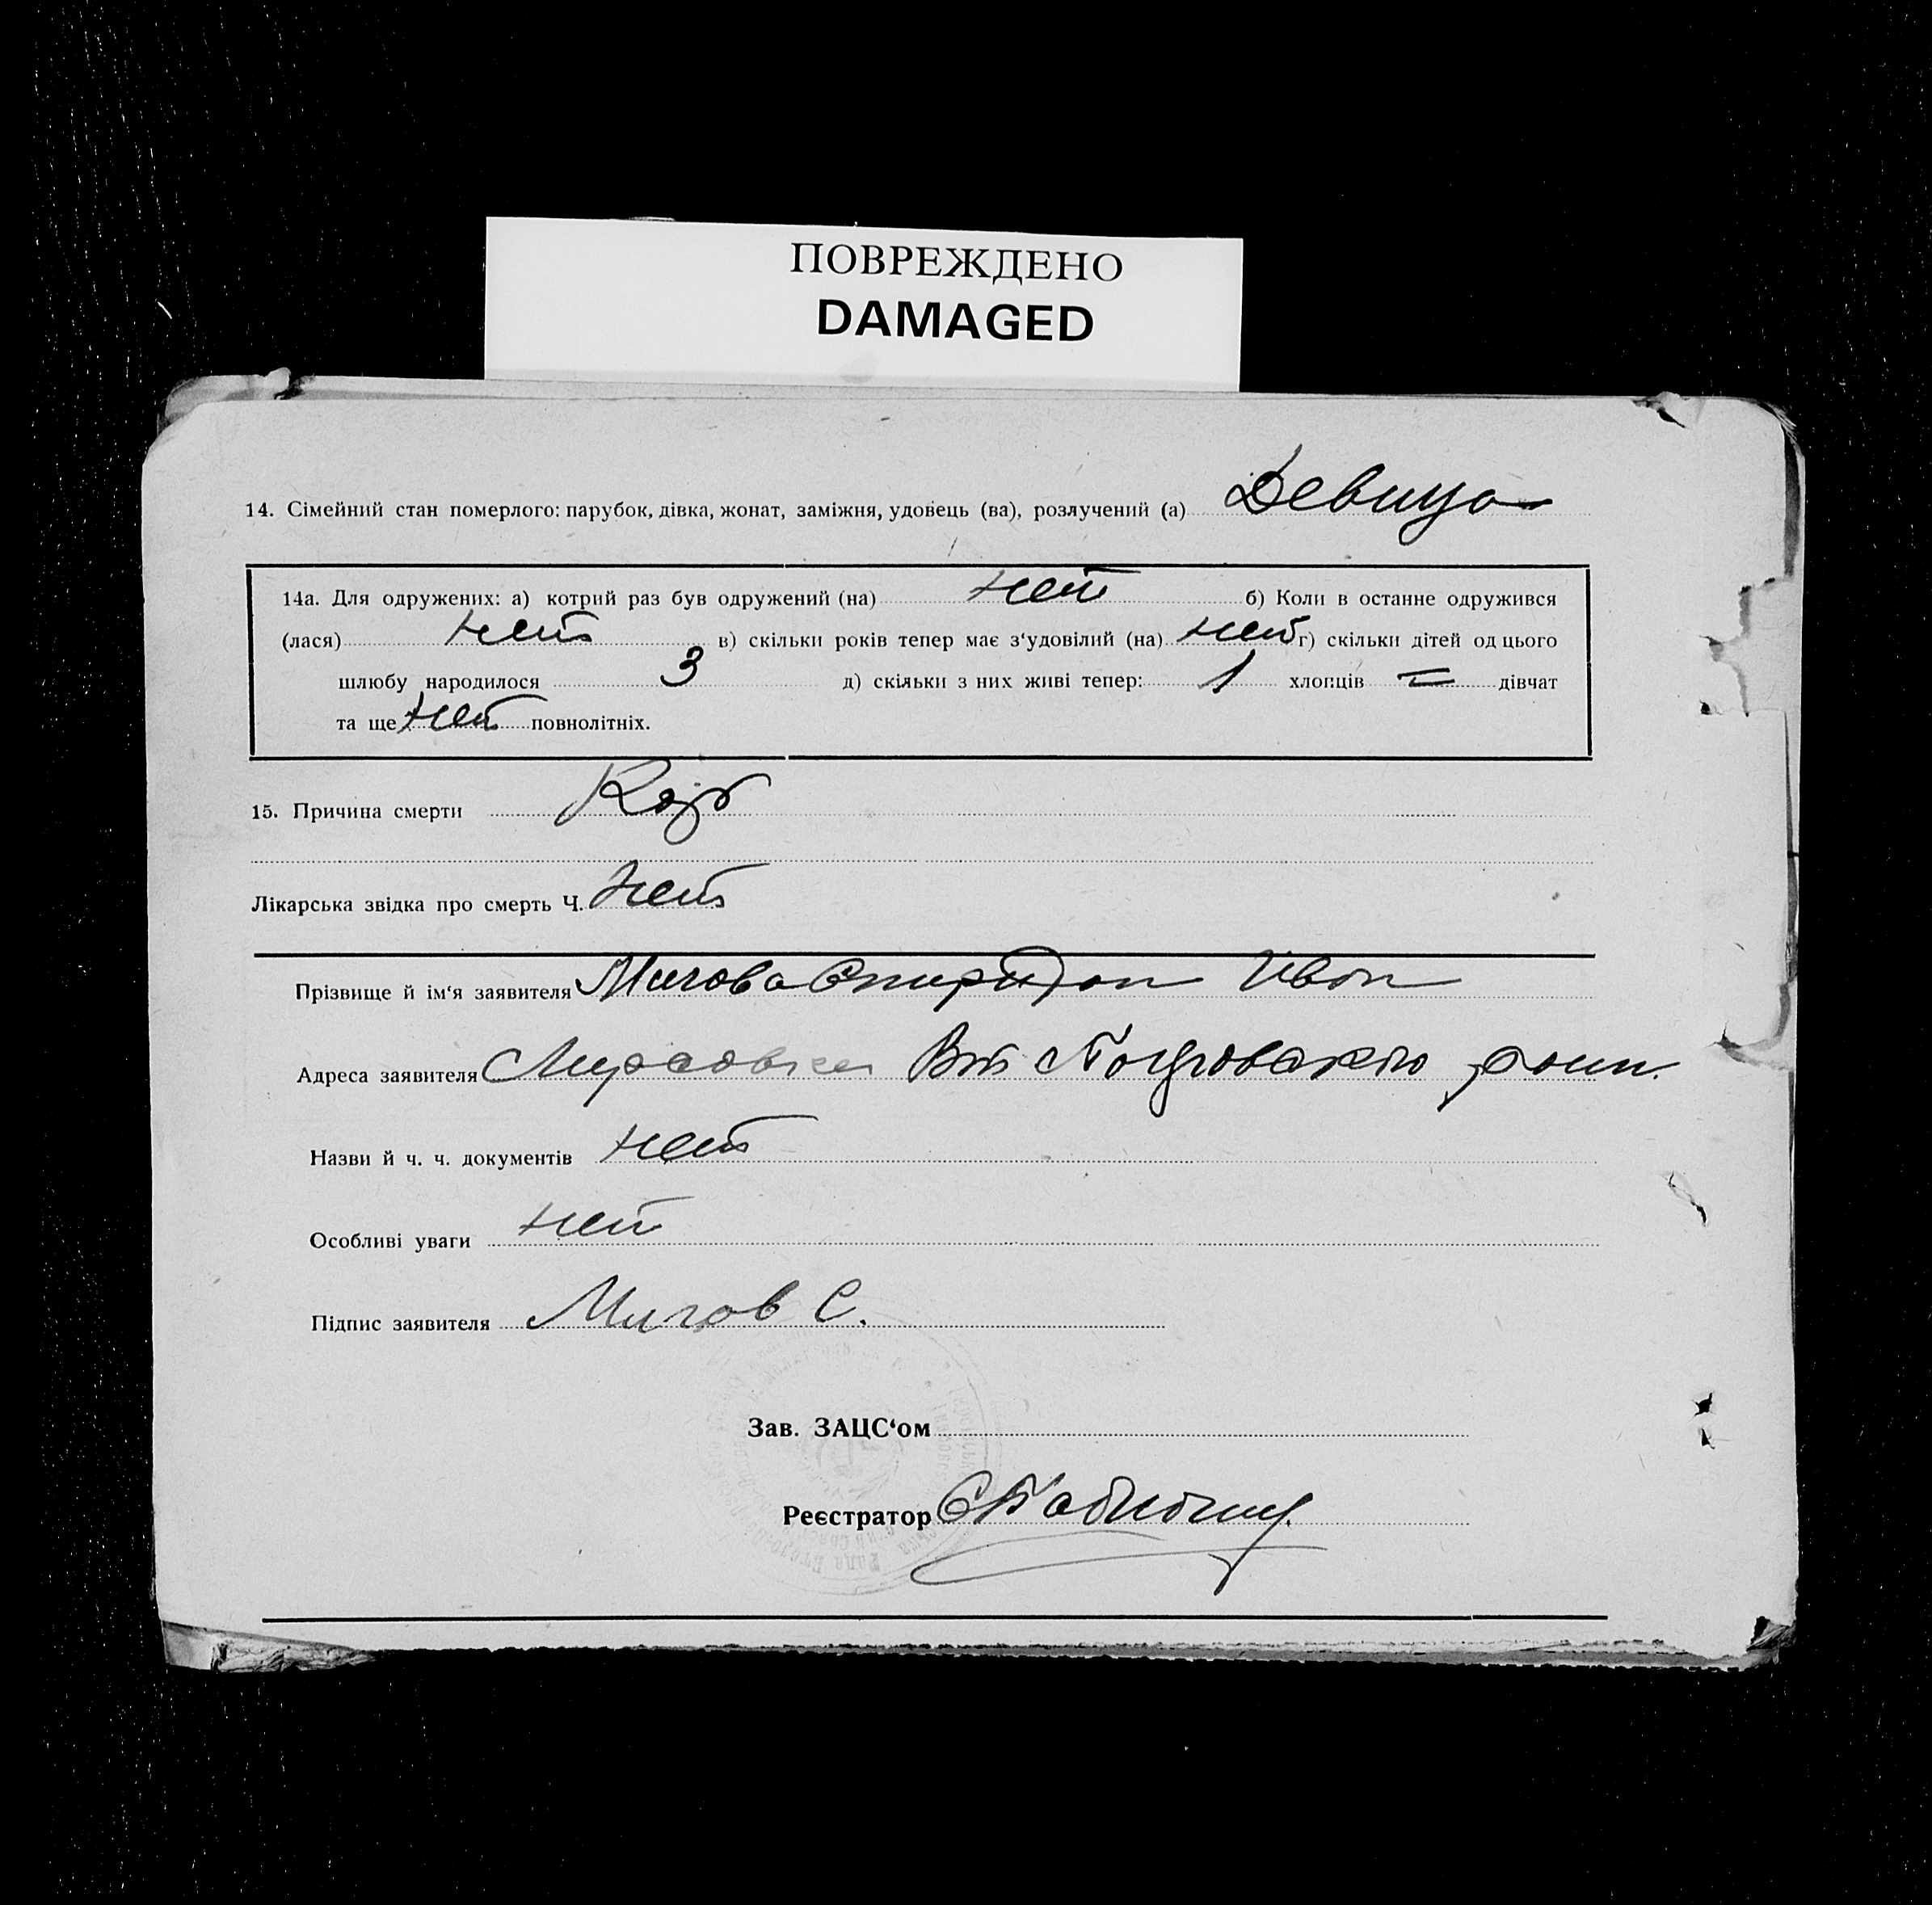 ПОВРЕЖДЕНО
DAMAGED
14. Сімейний стан померлого: парубок, дівка, жонат, заміжня, удовець (ва), розлучений (а) Девица
14а. Для одружених: а) котрий раз був одружений (на) нет б) Коли в останне одружився
(лася) нет в) скільки років тепер має з‘удовілий (на) нет г) скільки дітей од цього
шлюбу народилося 3 д) скільки з них живі тепер: 1 хлопців = дівчат
та ще нет повнолітніх.
15. Причина смерти
Лікарська звідка про смерть Ч. нет
Прізвище й ім‘я заявителя Мигова Спиридон Иван
Адреса заявителя
Назви й ч. ч. документів нет
Особливі уваги нет
Підпис заявителя Мигов С.
Зав. ЗАЦС‘ом
Реєстратор